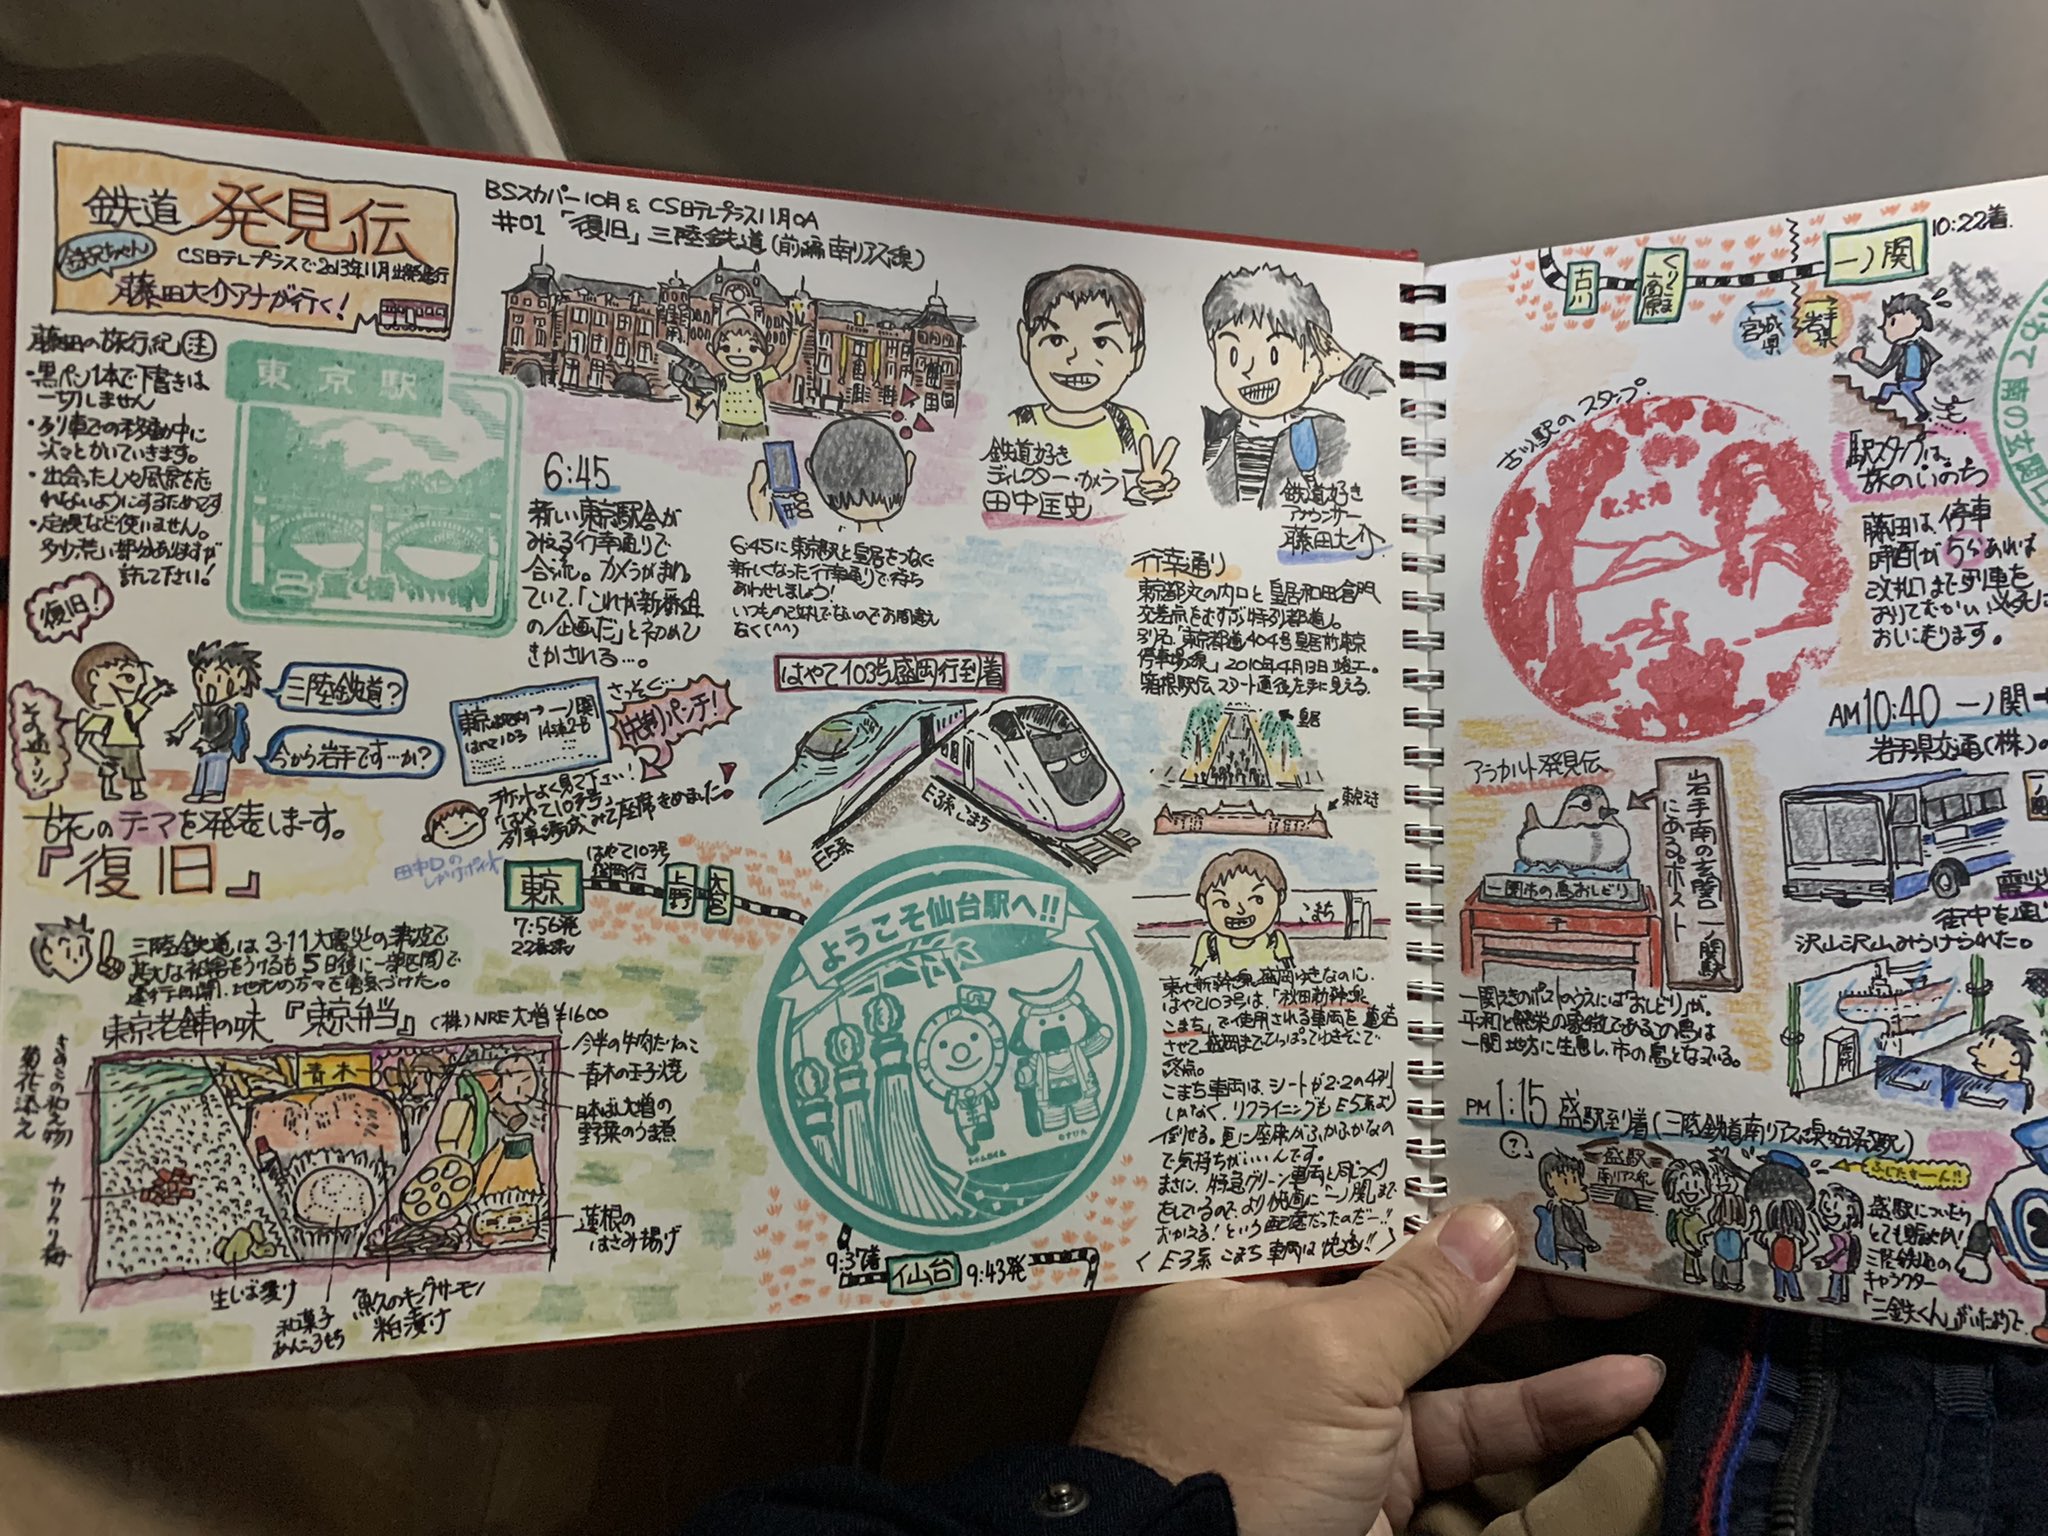 鉄道 発見伝
鉄兄ちゃん
CS日テレプラスで2013年11月出発進行
藤田大介アナが行く!
BSスカパー10月 & CS日テレプラス11月OA
#01 「復旧」三陸鉄道(前編 南リアス線)
藤田の旅行記 注
・黒ペン1本で下書きは
一切しません
・列車での移動中に
次々とかいていきます。
・出会った人や風景を忘
れないようにするためです
・定規など使いません。
多少荒い部分ありますが
許して下さい!
東京駅
二重橋
6:45
新しい東京駅舎が
みえる行幸通りで
合流。カメラがまわっ
ていて、「これが新番組
の企画だ」と初めて
きかされる…。
6:45に東京駅と皇居をつなぐ
新しくなった行幸通りで待ち
あわせしましょう!
いつものロケ地でないのでお間違え
なく(^^)
鉄道好き
ディレクター・カメラ
田中匡史
鉄道好き
アナウンサー
藤田大介
行幸通り
東京都丸の内口と皇居和田倉門
交差点をむすぶ「特例都道」。
別名「東京都道404号皇居前東京
停車場線」2010年4月13日竣工。
箱根駅伝スタート直後左手に見える。
皇居
東京駅
復旧!
三陸鉄道?
今から岩手です…か?
その通ーり!
旅のテーマを発表しまーす。
『復旧』
東京→一ノ関
はやて103 14号車2-B
さっそく…
はやて103号盛岡行到着
チケットよく見て下さい!
「はやて103号」
列車編成みて座席きめました。
E5系
E3系こまち
東京
はやて103号
盛岡行
上野
大宮
7:56発
三陸鉄道は3・11大震災の津波で
甚大な被害をうけるも5日後に一部区間で
運行再開、地元の方々を勇気づけた。
東京老舗の味 『東京弁当』 (株)NRE大増 ¥1600
青木
今半の牛肉たけのこ
青木の玉子焼
日本ばし大増の
野菜のうま煮
蓮根の
はさみ揚げ
魚久のキングサーモン
粕漬け
和菓子
あんころもち
生しば漬け
カリカリ梅
きのこの和え物
菊花添え
ようこそ仙台駅へ!!
9:37着
仙台
9:43発
こまち
東北新幹線盛岡ゆきなのに、
はやて103号は、「秋田新幹線
こまち」で使用される車両を連結
させて盛岡までひっぱってゆきそこで
終点。
こまち車両は、シートが2・2の4列
しかなく、リクライニングもE5系より
倒せる。更に座席がふかふかなの
で気持ちがいいんです。
まさに、特急グリーン車両と同じつくり
をしているので、より快適に一ノ関まで
むかえる!という配慮だったのだー!!
〈E3系こまち車両は快適!!〉
古川
くりこま高原
一ノ関
10:22着
宮城県
岩手県
古川駅のスタンプ
化女沼
駅スタンプは、
旅のいのち
藤田は、停車
時間が5分あれば
改札口まで列車を
おりてむかい必死に
おいに走ります。
AM10:40 一ノ関→
岩手県交通(株)。
アラカルト発見伝
岩手南の玄関一ノ関駅
にあるポスト
一関市の鳥おしどり
一関えきのポストのうえには「おしどり」が。
平和と繁栄の象徴であるこの鳥は
一関地方に生息し、市の鳥となっている。
震災
街中を通じ
沢山沢山みうけられた。
PM 1:15 盛駅到着(三陸鉄道南リアス線始発駅)
盛駅
南リアス線
盛駅についたら
とても賑やか!
三陸鉄道の
キャラクター
「三鉄くん」がいたので